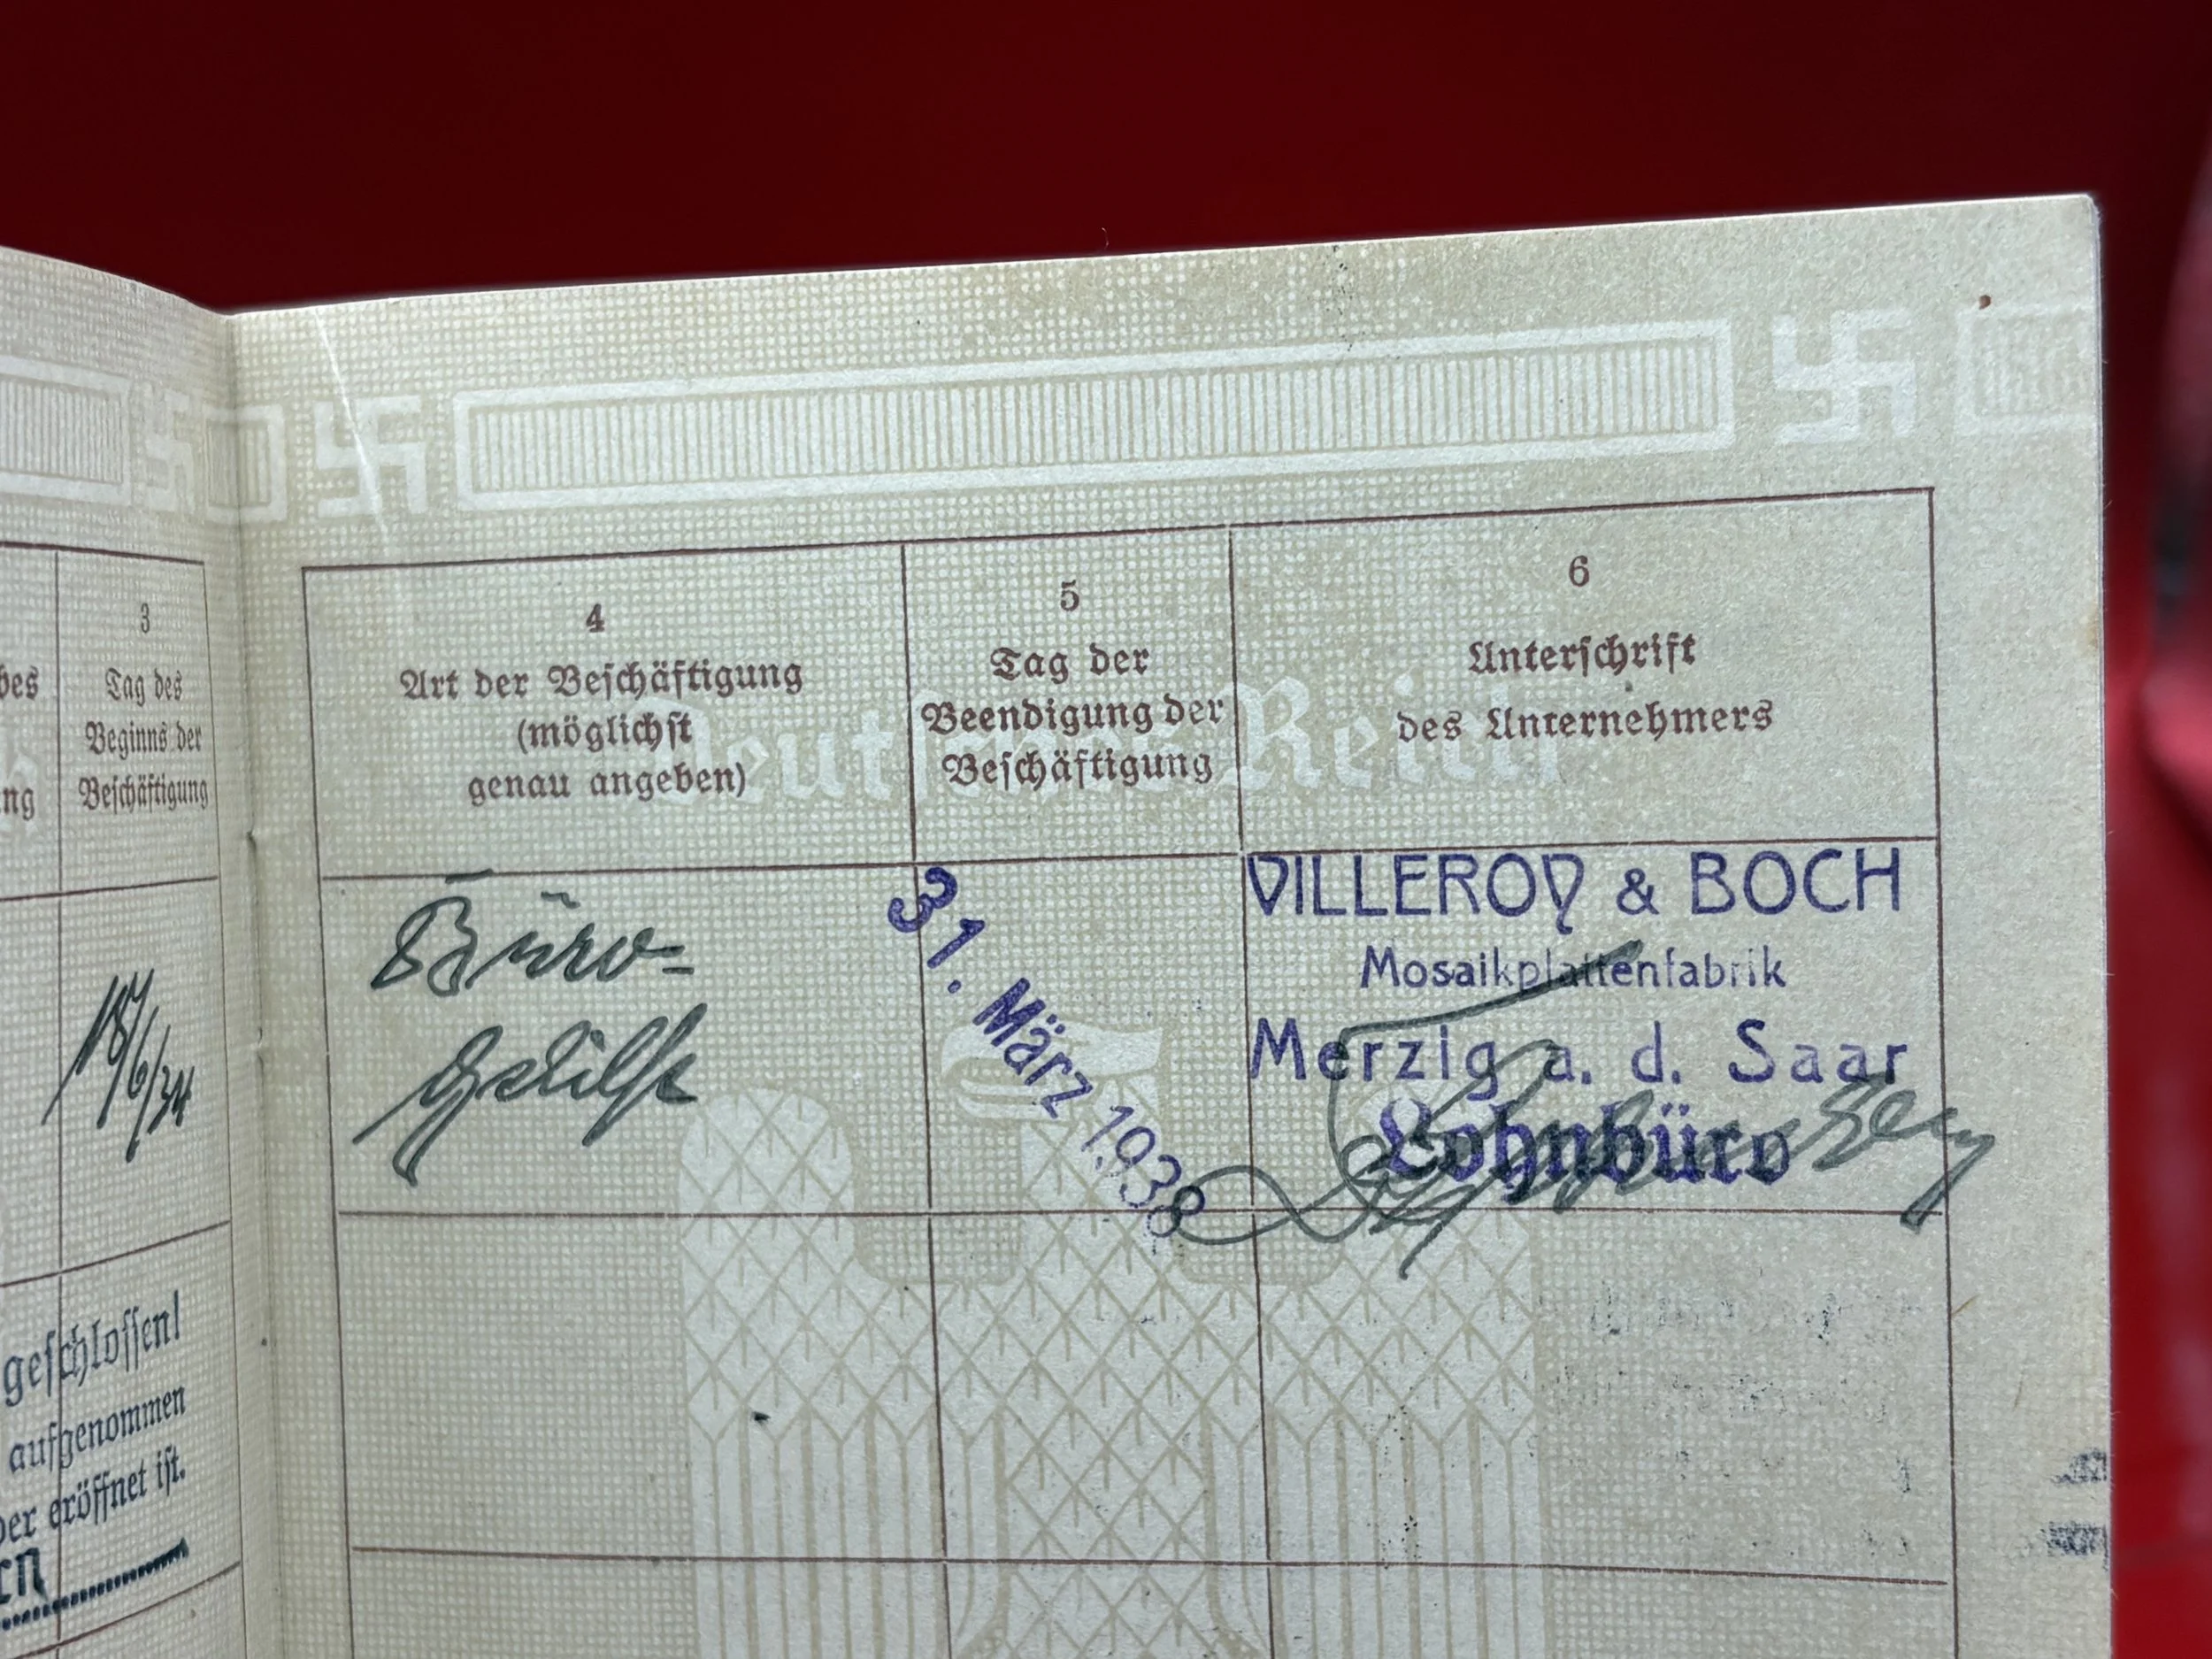 bes
ng
3
Tag des
Beginns der
Beschäftigung
18/6/34
geschlossen!
aufgenommen
der eröffnet ist.
en
4
Art der Beschäftigung
(möglichst
genau angeben)
5
Tag der
Beendigung der
Beschäftigung
6
Unterschrift
des Unternehmers
Deutsches Reich
Büro-
Gehilfe
31. März 1938
VILLEROY & BOCH
Mosaikplattenfabrik
Merzig a. d. Saar
Lohnbüro